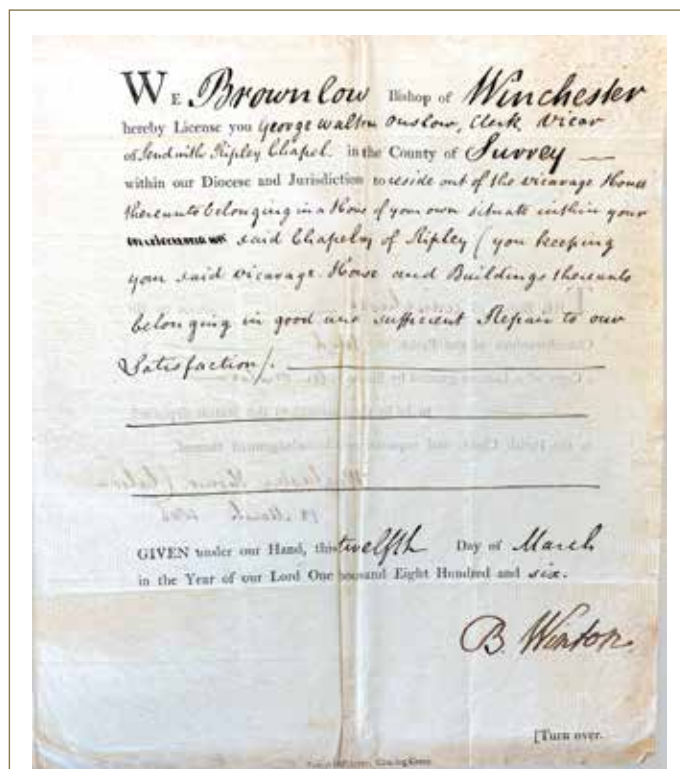 WE Brownlow Bishop of Winchester
hereby License you George Walton Onslow, Clerk Vicar
of Send with Ripley Chapel in the County of Surrey
within our Diocese and Jurisdiction to reside out of the vicarage House
thereunto belonging in a House of your own situate within your
said Chapelry of Ripley (you keeping
your said vicarage House and Buildings thereunto
belonging in good and sufficient Repair to our
Satisfaction).
GIVEN under our Hand, this twelfth Day of March
in the Year of our Lord One Thousand Eight Hundred and six.
B. Winton
[Turn over.